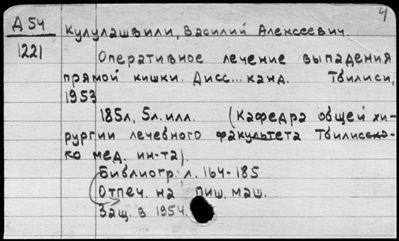 4
Д 54
1221
Кулулашвили, Василий Алексеевич.
Оперативное лечение выпадения
прямой кишки. Дисс... канд. Тбилиси,
1953
185л, 5л. илл. (Кафедра общей хи-
рургии лечебного факультета Тбилисско-
ко мед. ин-та).
Библиогр. л. 164-185
Отпеч. на пиш. маш.
Защ. в 1954.